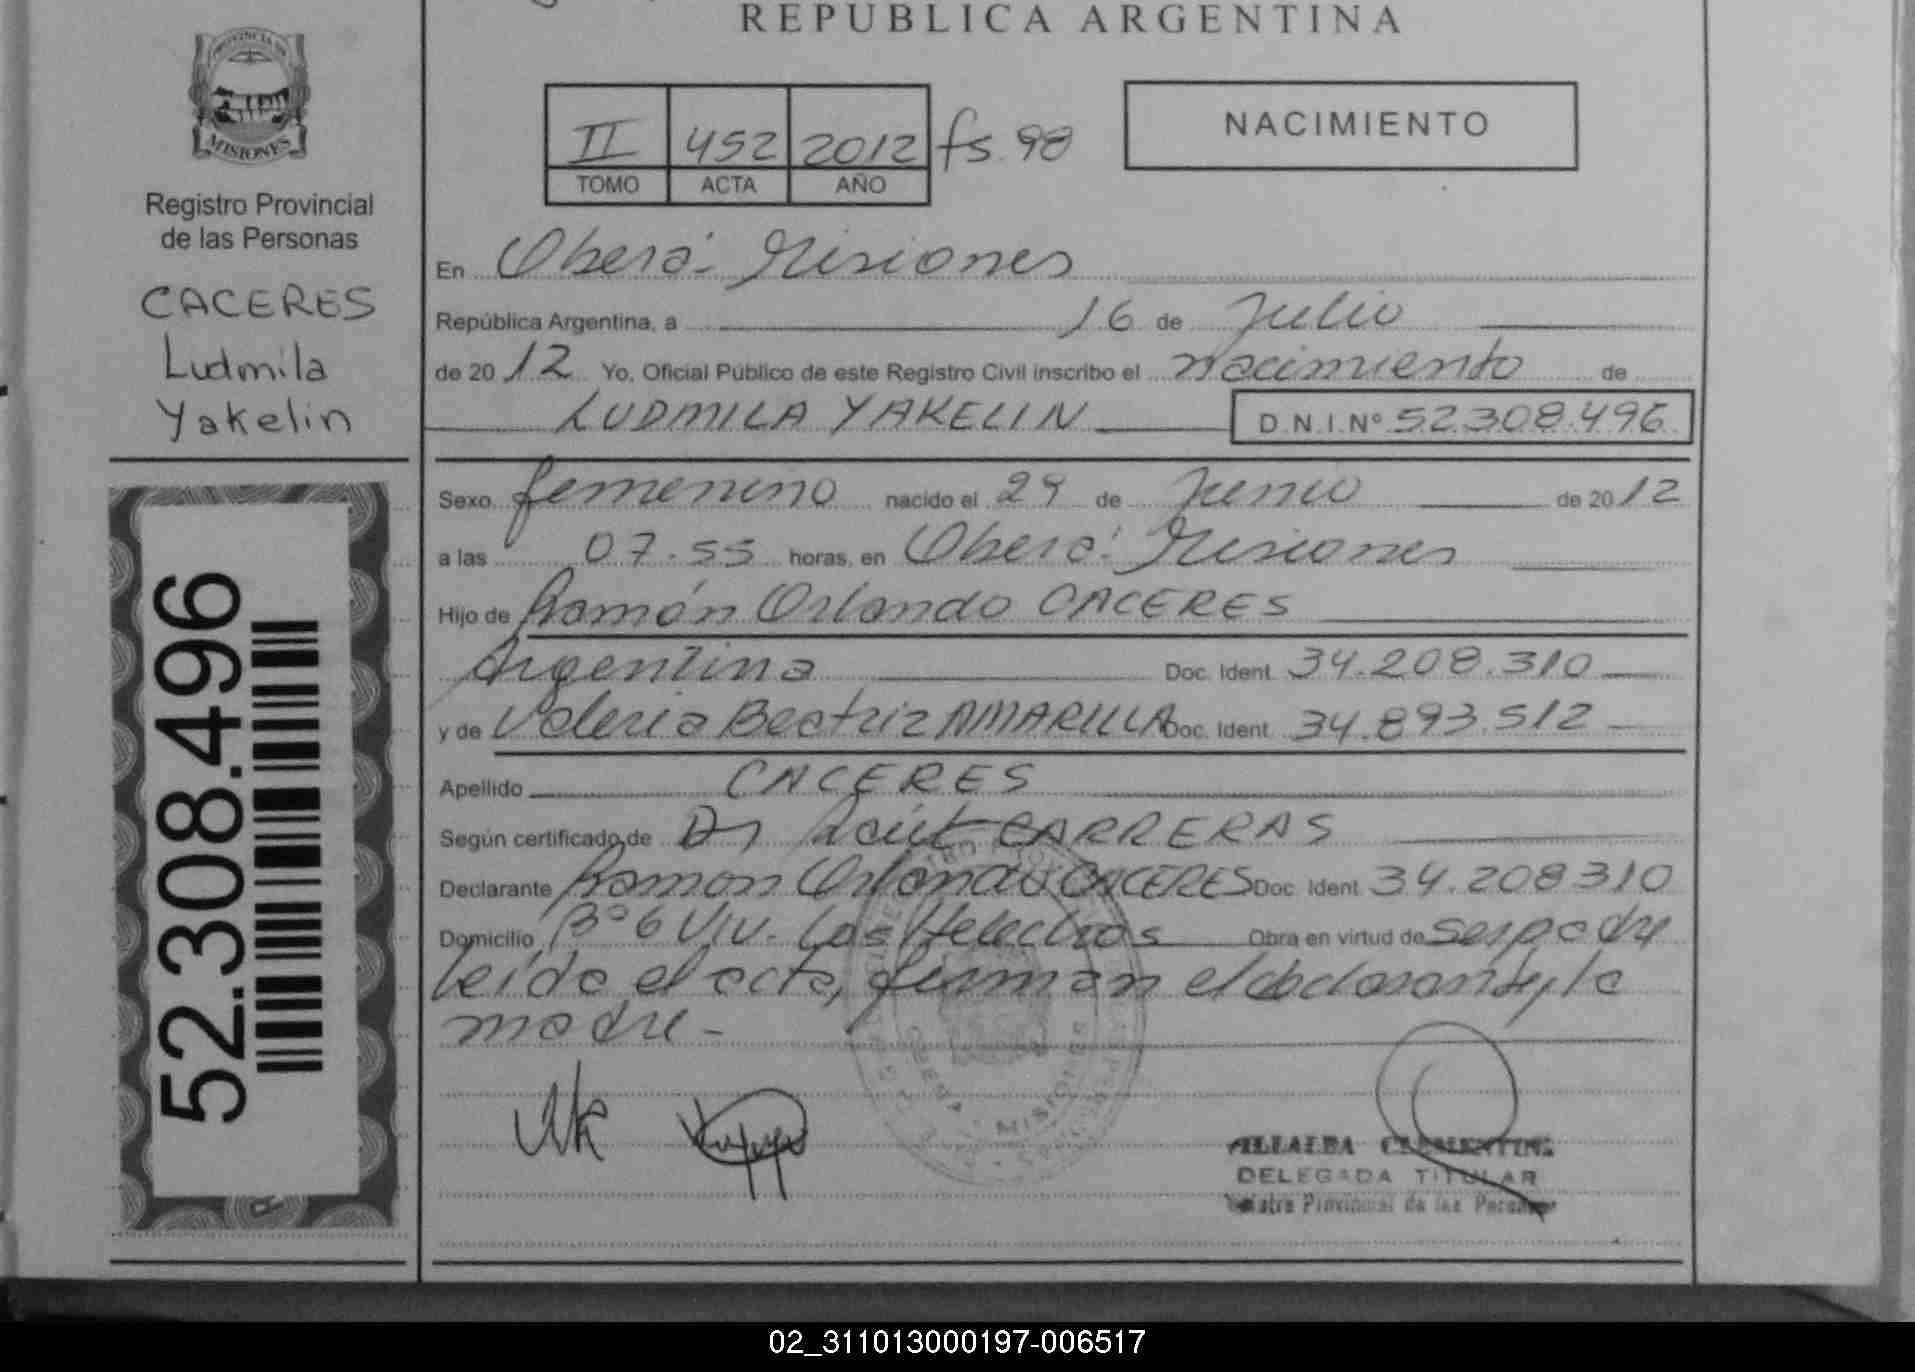 REPUBLICA ARGENTINA
PROVINCIA DE
MISIONES
Registro Provincial
de las Personas
CACERES
Ludmila
Yakelin
52.308.496
II 452 2012 fs. 98
TOMO ACTA AÑO
NACIMIENTO
En Oberá - Misiones
República Argentina, a 16 de Julio
de 2012 Yo, Oficial Público de este Registro Civil inscribo el nacimiento de
LUDMILA YAKELIN D.N.I.Nº 52.308.496
Sexo femenino nacido el 29 de Junio de 2012
a las 07.55 horas, en Oberá - Misiones
Hijo de Ramón Orlando CACERES
Argentina Doc. Ident. 34.208.310
y de Valeria Beatriz AMARILLA Doc. Ident. 34.893.512
Apellido CACERES
Según certificado de Dr Raúl CARRERAS
Declarante Ramon Orlando CACERES Doc. Ident. 34.208310
Domicilio Bº 6 Viv. Los Helechos Obra en virtud de ser padre
leída el acta, firman el declarante y la
madre -
MISIONES
CLEMENTINA
DELEGADA TITULAR
Registro Provincial de las Personas
02_311013000197-006517